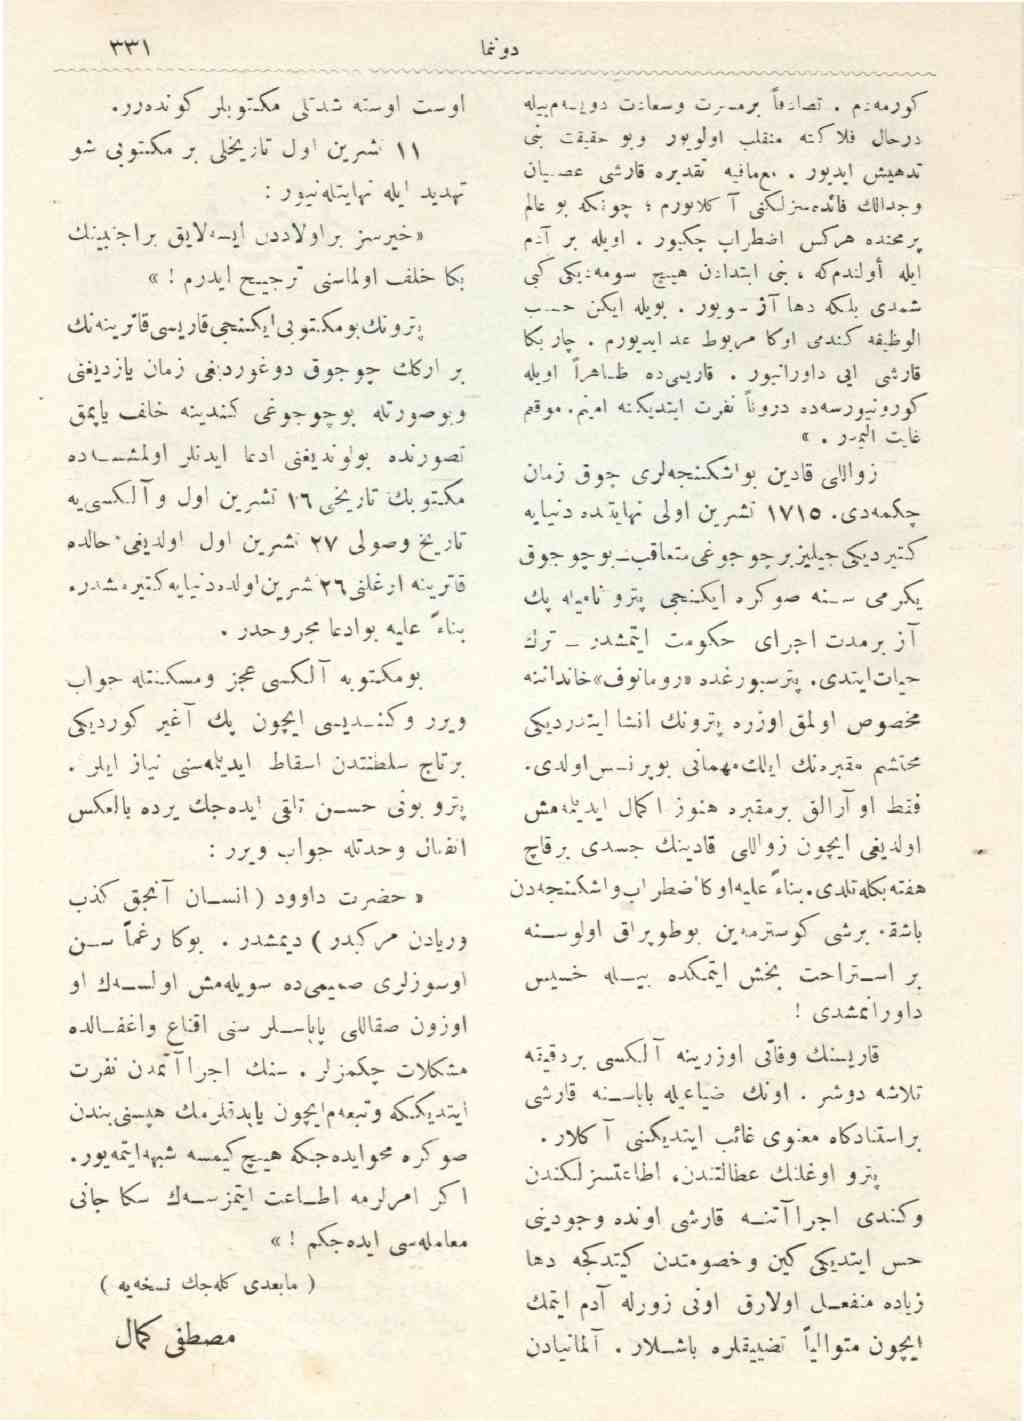 ٣٣١
دونما
كورمه‌دم . تصادفاً برمسرت وسعادت دويسه‌م بيله
درحال فلاكته منقلب اولويور وبو حقيقت بنى
تدهيش ايديور . مع‌مافيه تقديره قارشى عصيان
وجدالك فائده‌سزلكنى آ كلايورم ؛ چونكه بو عالم
پرمحنده هركس اضطراب چكيور . اويله بر آدم
ايله أولندم‌كه ، بنى ابتدادن هيچ سومه‌ديكى كبى
شمدى بلكه دها آز سويور . بويله ايكن حسب
الوظيفه كندمى اوكا مربوط عد ايديورم . چار بكا
قارشى ايى داورانيور . قاريسى‌ده ظاهراً اويله
كورونيورسه‌ده دروناً نفرت ايتديكنه امينم. موقعم
غايت اليمدر . »
زواللى قادين بواشكنجه‌لرى چوق زمان
چكمه‌دى. ١٧١٥ تشرين اولى نهايتنده دنيايه
كتيرديكى جيليز برچوجوغى متعاقب ــ بوچوجوق
يكرمى سنه صوكره ايكنجى پترو ناميله پك
آز برمدت اجراى حكومت ايتمشدر ــ ترك
حيات ايتدى. پترسبورغده «رومانوف» خانداننه
مخصوص اولمق اوزره پترونك انشا ايتديرديكى
محتشم مقبره‌نك ايلك مهمانى بوپرنسس اولدى.
فقط او آرالق برمقبره هنوز اكمال ايديلمه‌مش
اولديغى ايچون زواللى قادينك جسدى برقاچ
هفته بكله‌تلدى. بناءً عليه اوكا اضطراب واشكنجه‌دن
باشقه برشى كوسترمه‌ين بوطوپراق اولوسنه
بر استراحت بخش ايتمكده بيله خسيس
داورانمشدى !
قاريسنك وفاتى اوزرينه آلكسى بردقيقه
تلاشه دوشر . اونك ضياعيله باباسنه قارشى
براستنادكاه معنوى غائب ايتديكنى آ كلار .
پترو اوغلنك عطالتندن، اطاعتسزلكندن
وكندى اجراآتنه قارشى اونده وجودينى
حس ايتديكى كين و خصومتدن كيتدكجه دها
زياده منفعل اولارق اونى زورله آدم ايتمك
ايچون متوالياً تضييقلره باشلار . آلمانيادن
اوست اوسته شدتلى مكتوبلر كوندەرر.
١١ تشرين اول تاريخلى بر مكتوبى شو
تهديد ايله نهايتله‌نيور :
«خيرسز براولاددن ايسه لايق براجنبينك
بكا خلف اولماسنى ترجيح ايدرم ! »
پترونك بومكتوبى ايكنجى قاريسى قاترينه‌نك
بر اركك چوجوق دوغورديغى زمان يازديغنى
وبوصورتله بوچوجوغى كندينه خلف ياپمق
تصورنده بولونديغنى ادعا ايدنلر اولمشسه‌ده
مكتوبك تاريخى ١٦ تشرين اول و آلكسى‌يه
تاريخ وصولى ٢٧ تشرين اول اولديغى حالده
قاترينه ارغلنى ٢٦ تشرين اولده دنيايه كتيرمشدر.
بناءً عليه بوادعا مجروحدر .
بومكتوبه آلكسى عجز ومسكنتله جواب
ويرر وكنديسى ايچون پك آغير كورديكى
برتاج سلطنتدن اسقاط ايديلمه‌سنى نياز ايلر .
پترو بونى حسن تلقى ايده‌جك يرده بالعكس
انفعال وحدتله جواب ويرر :
« حضرت داوود ( انسان آنجق كذب
وريادن مركبدر ) ديمشدر . بوكا رغماً سن
اوسوزلرى صميمى‌ده سويله‌مش اولسه‌ك او
اوزون صقاللى پاپاسلر سنى اقناع واغفالده
مشكلات چكمزلر . سنك اجراآتمدن نفرت
ايتديككه وتبعه‌م ايچون ياپدقلرمك هپسنى بندن
صوكره محوايده‌جككه هيچ كيمسه شبهه ايتمه‌يور.
اكر امرلرمه اطاعت ايتمزسه‌ك سكا جانى
معامله‌سى ايده‌جكم ! »
( مابعدى كله‌جك نسخه‌يه )
مصطفى كمال